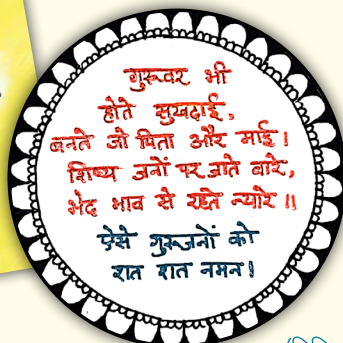 गुरूवर भी
होते सुखदाई,
बनते जो पिता और माई।
शिष्य जनों पर जाते वारे,
भेद भाव से रहते न्यारे॥
ऐसे गुरूजनों को
शत शत नमन!